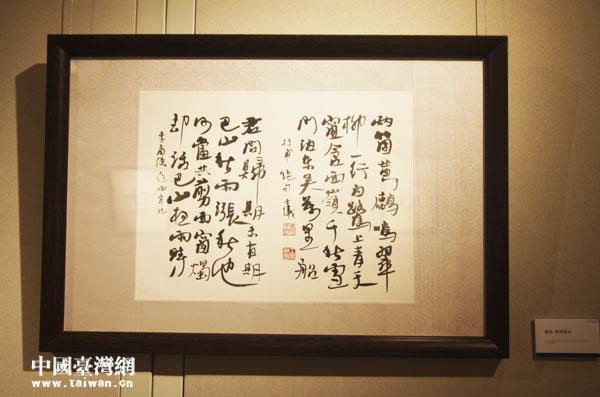 兩箇黃鸝鳴翠
柳一行白鷺上青天
窗含西嶺千秋雪
門泊東吳萬里船
杜甫絕句
君問歸期未有期
巴山夜雨漲秋池
何當共剪西窗燭
却話巴山夜雨時
李商隱夜雨寄北
中國臺灣網
www.taiwan.cn